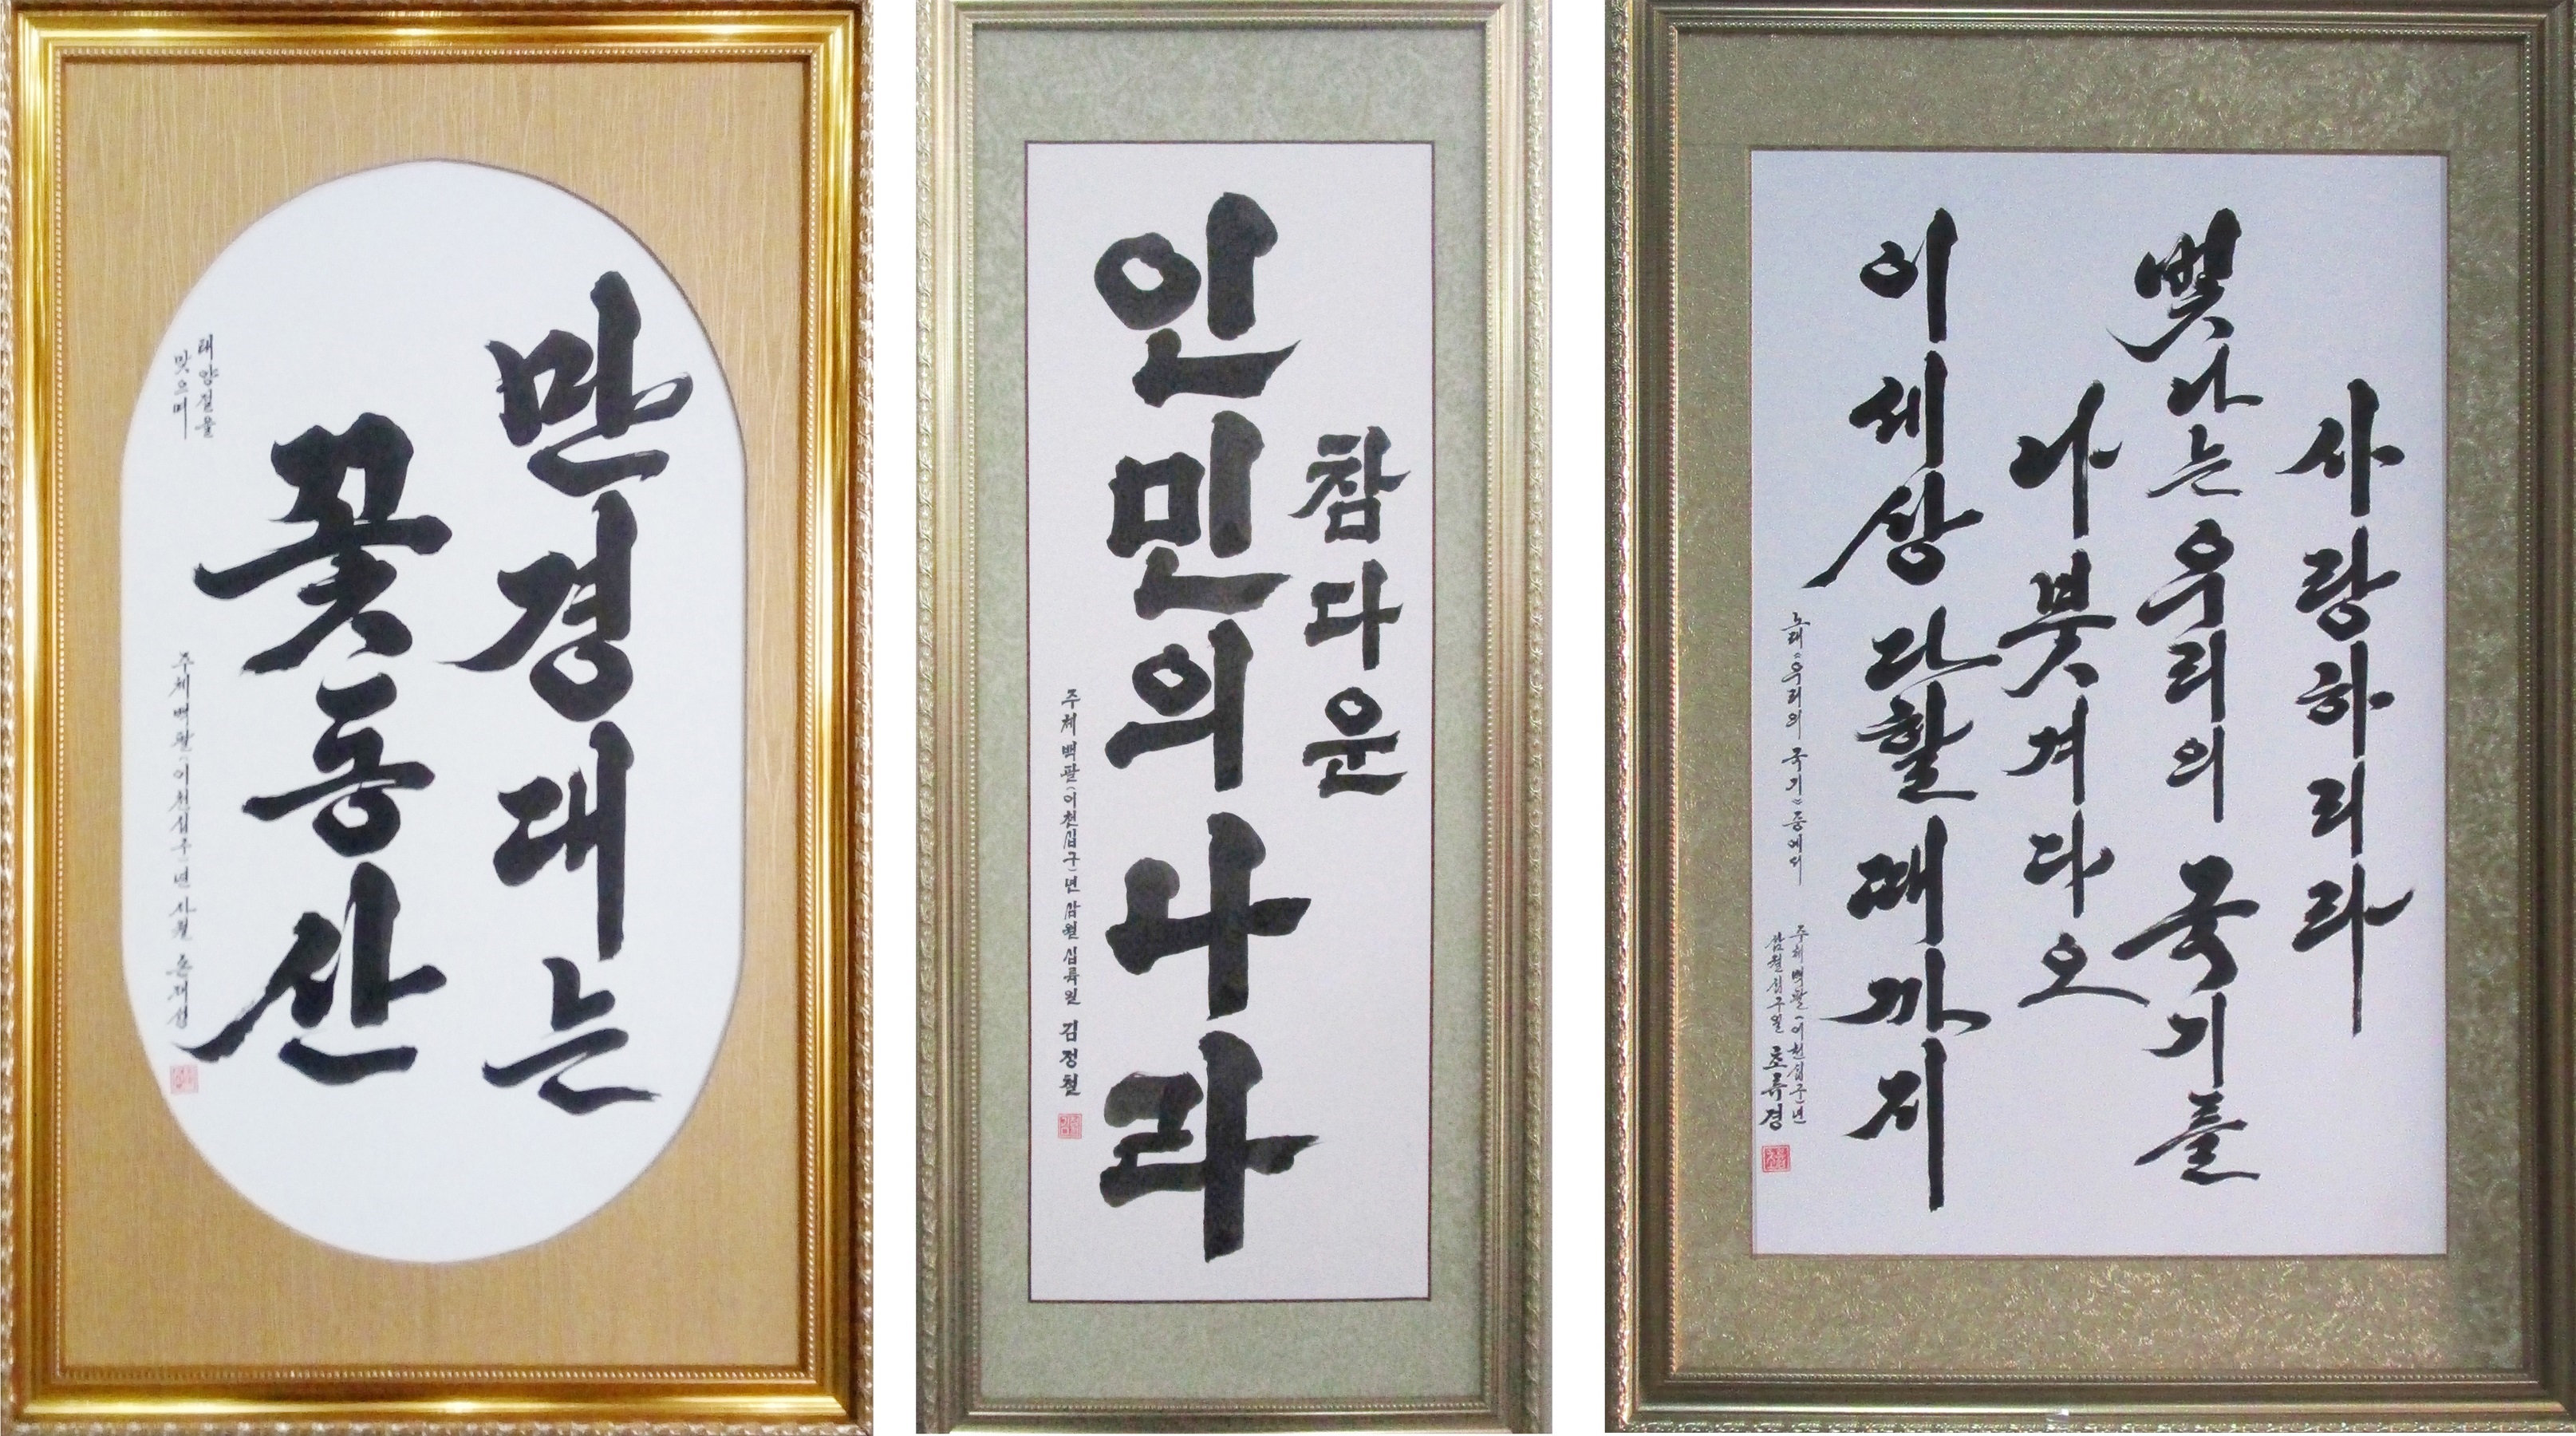 만경대는
꽃동산
태양절을
맞으며
주체백팔(이천십구)년 사월
참다운
인민의 나라
주체 백팔(이천십구)년 삼월 십륙일 김정철
사랑하리라
빛나는 우리의 국기를
나붓겨다오
이 세상 다할 때까지
노래《우리의 국기》중에서
주체백팔(이천십구)년
삼월십구일 초류경